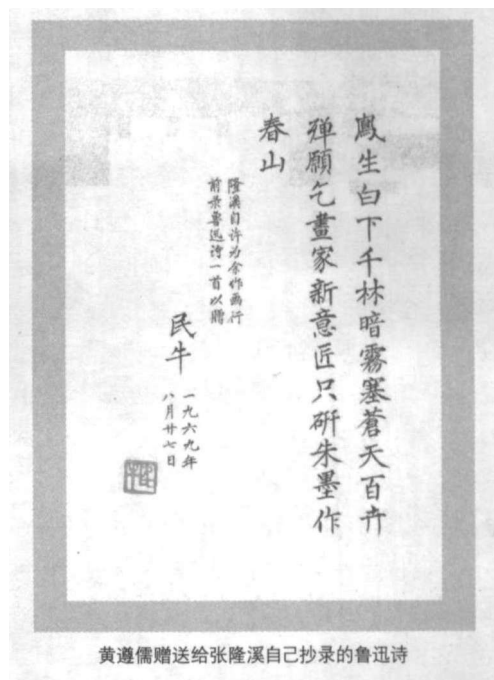 風生白下千林暗霧塞蒼天百卉
殫願乞畫家新意匠只研朱墨作
春山
隆溪自许为余作画行
前录鲁迅诗一首以赠
民牛
一九六九年
八月廿七日
黄遵儒赠送给张隆溪自己抄录的鲁迅诗